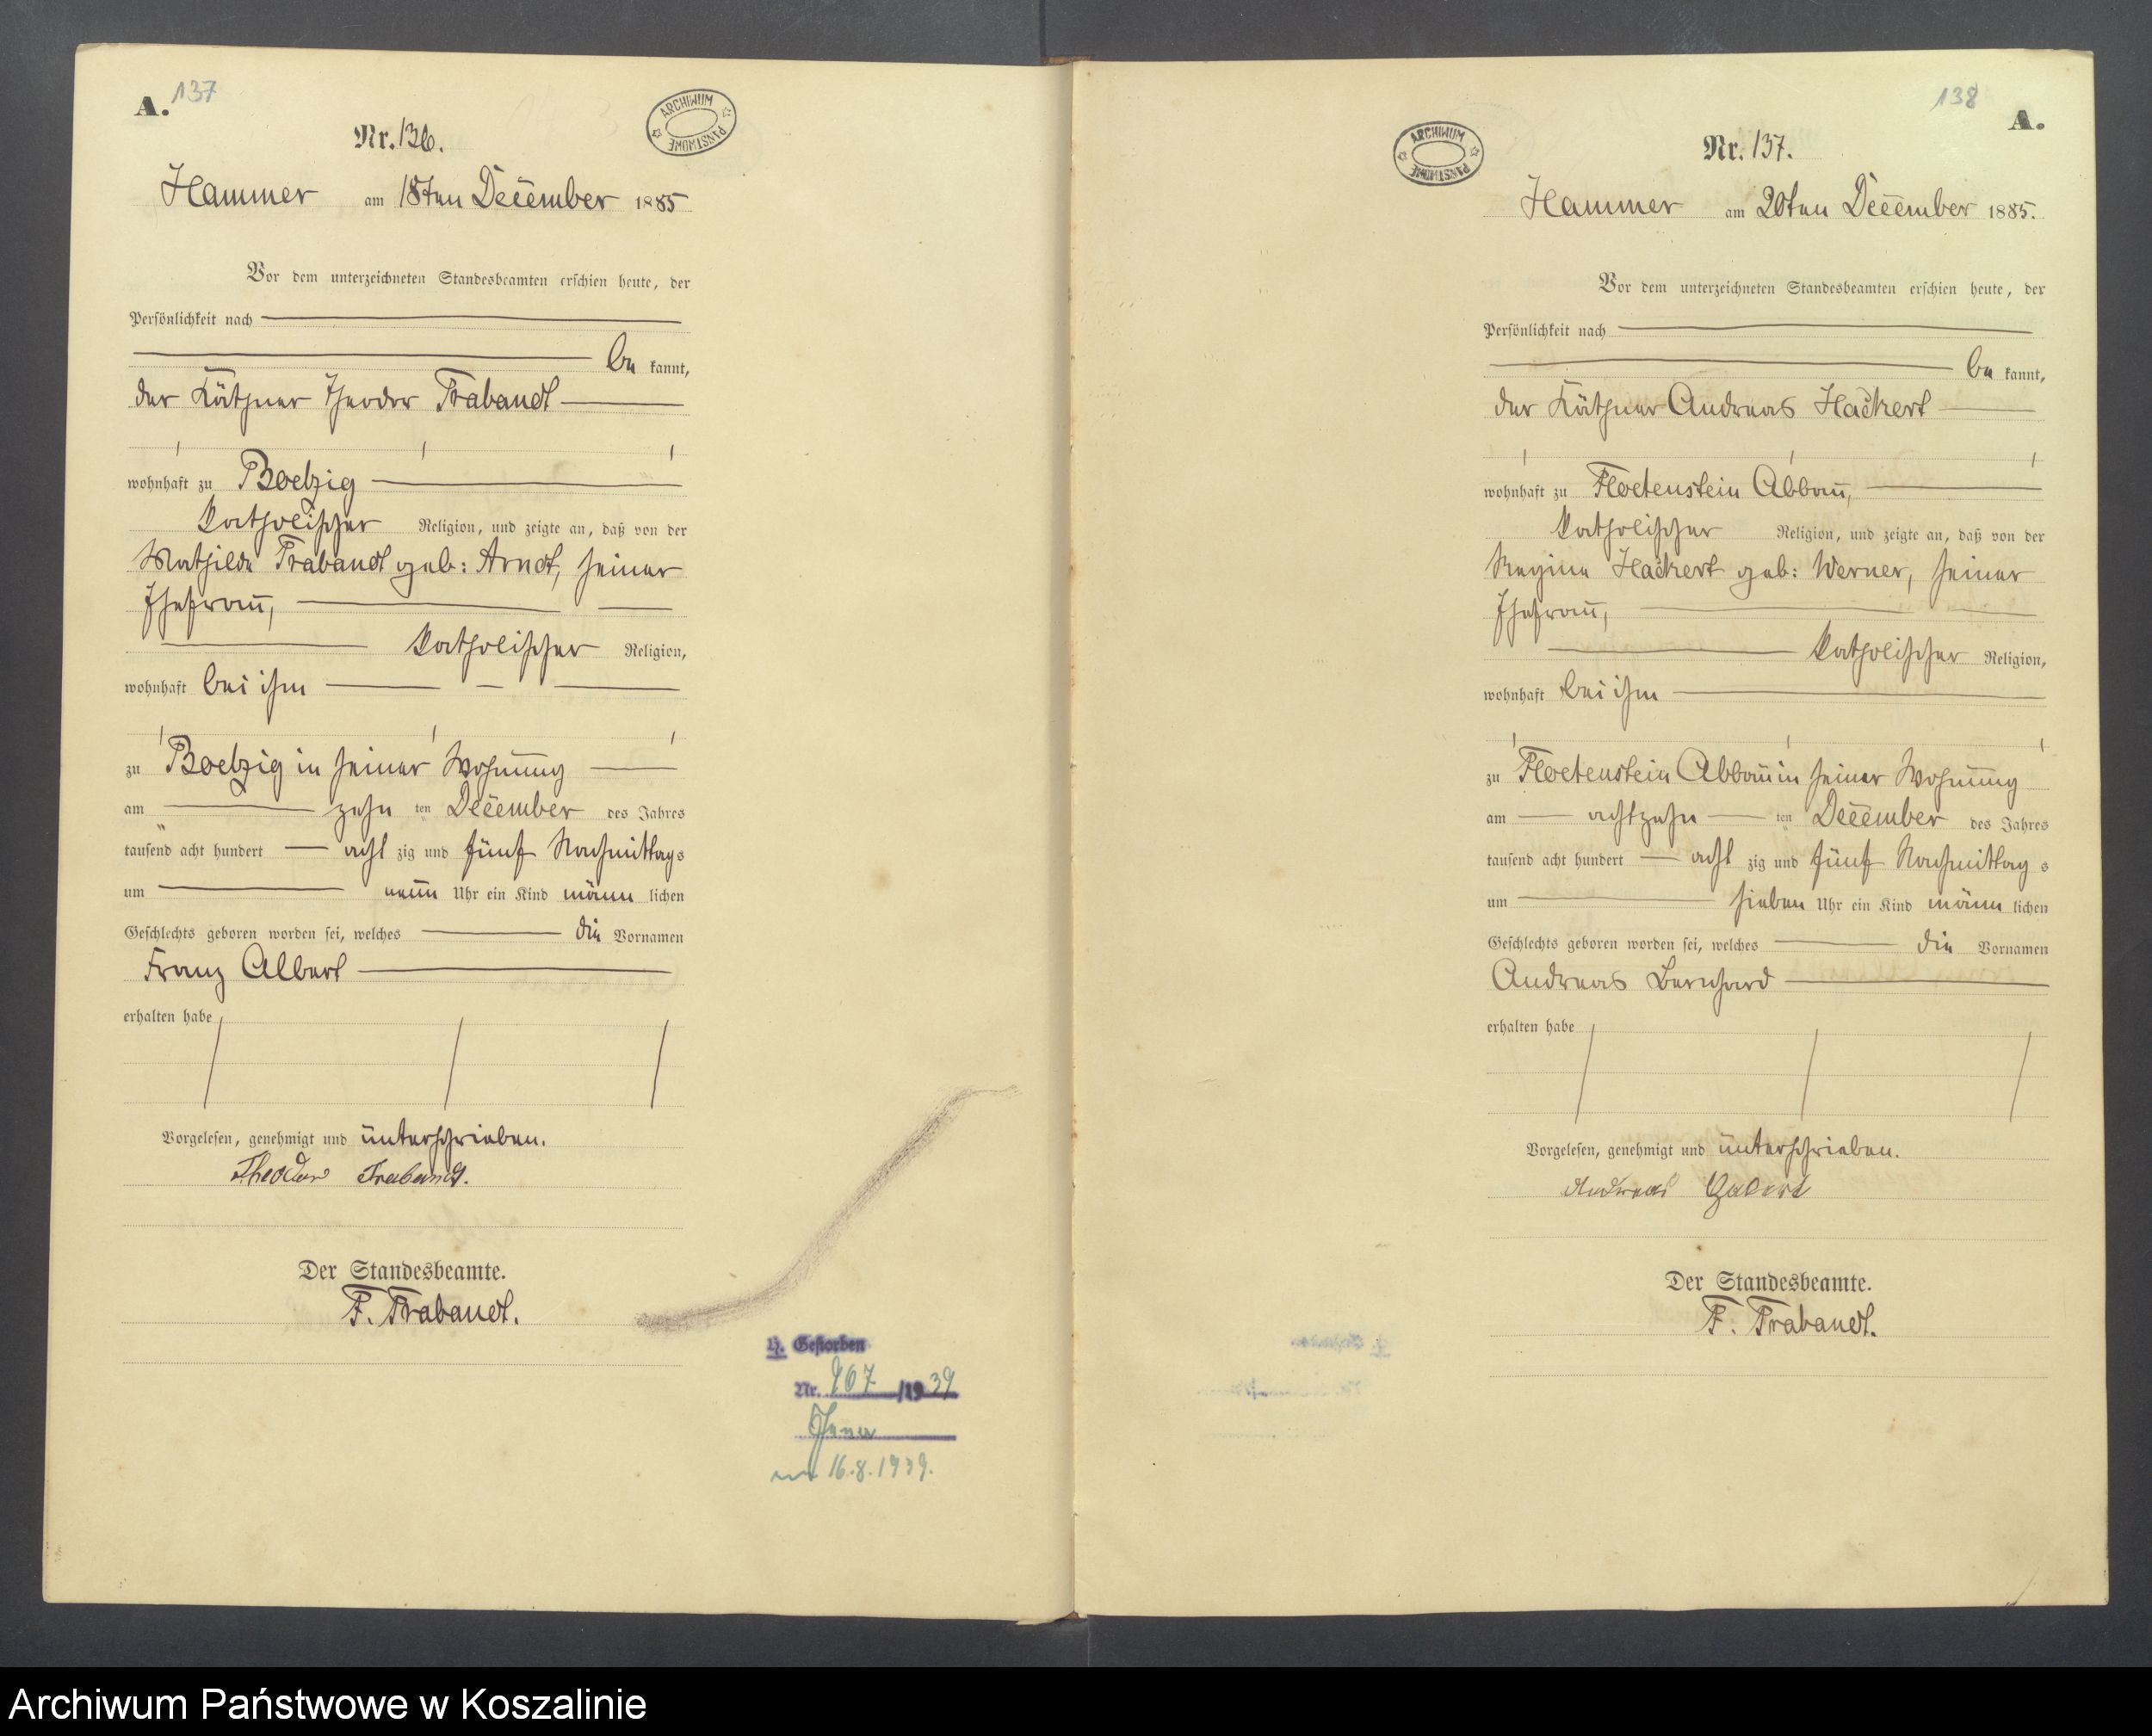 A. 137
ARCHIWUM PAŃSTWOWE
Nr. 136.
Hammer am 18ten December 1885
Vor dem unterzeichneten Standesbeamten erschien heute, der
Persönlichkeit nach
be kannt,
der Käthner Theodor Trabandt
wohnhaft zu Boelzig
katholischer Religion, und zeigte an, daß von der
Mathilde Trabandt geb: Arndt, seiner
Ehefrau,
katholischer Religion,
wohnhaft bei ihm
zu Boelzig in seiner Wohnung
am zehn ten December des Jahres
tausend acht hundert acht zig und fünf Nachmittags
um neun Uhr ein Kind männ lichen
Geschlechts geboren worden sei, welches die Vornamen
Franz Albert
erhalten habe
Vorgelesen, genehmigt und unterschrieben.
Theodor Trabandt.
Der Standesbeamte.
F. Trabandt.
H. Gestorben
Nr. 967 /1939
Jena
16.8.1939.
138
A.
ARCHIWUM PAŃSTWOWE
Nr. 137.
Hammer am 20ten December 1885.
Vor dem unterzeichneten Standesbeamten erschien heute, der
Persönlichkeit nach
be kannt,
der Käthner Andreas Hackert
wohnhaft zu Floetenstein Abbau,
katholischer Religion, und zeigte an, daß von der
Regine Hackert geb: Werner, seiner
Ehefrau,
katholischer Religion,
wohnhaft bei ihm
zu Floetenstein Abbau in seiner Wohnung
am achtzehn ten December des Jahres
tausend acht hundert acht zig und fünf Nachmittag s
um sieben Uhr ein Kind männ lichen
Geschlechts geboren worden sei, welches die Vornamen
Andreas Bernhard
erhalten habe
Vorgelesen, genehmigt und unterschrieben.
Andreas
Der Standesbeamte.
F. Trabandt.
Archiwum Państwowe w Koszalinie